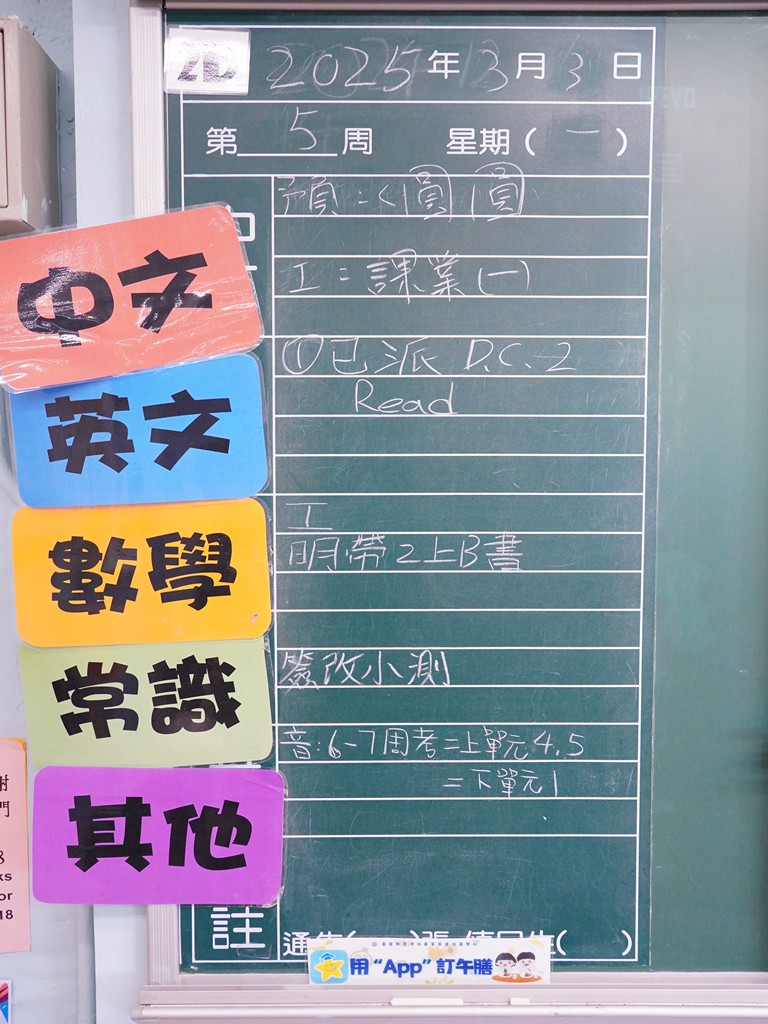 2D 2025年3月3日
第5周 星期(一)
預:<圓圓
中文
工:課業(一)
①已派 D.C.2
Read
英文
工
明帶2上B書
數學
簽改小測
常識
音:6-7周考=上單元4.5
=下單元1
其他
註
用“App”訂午膳
ks
or
18